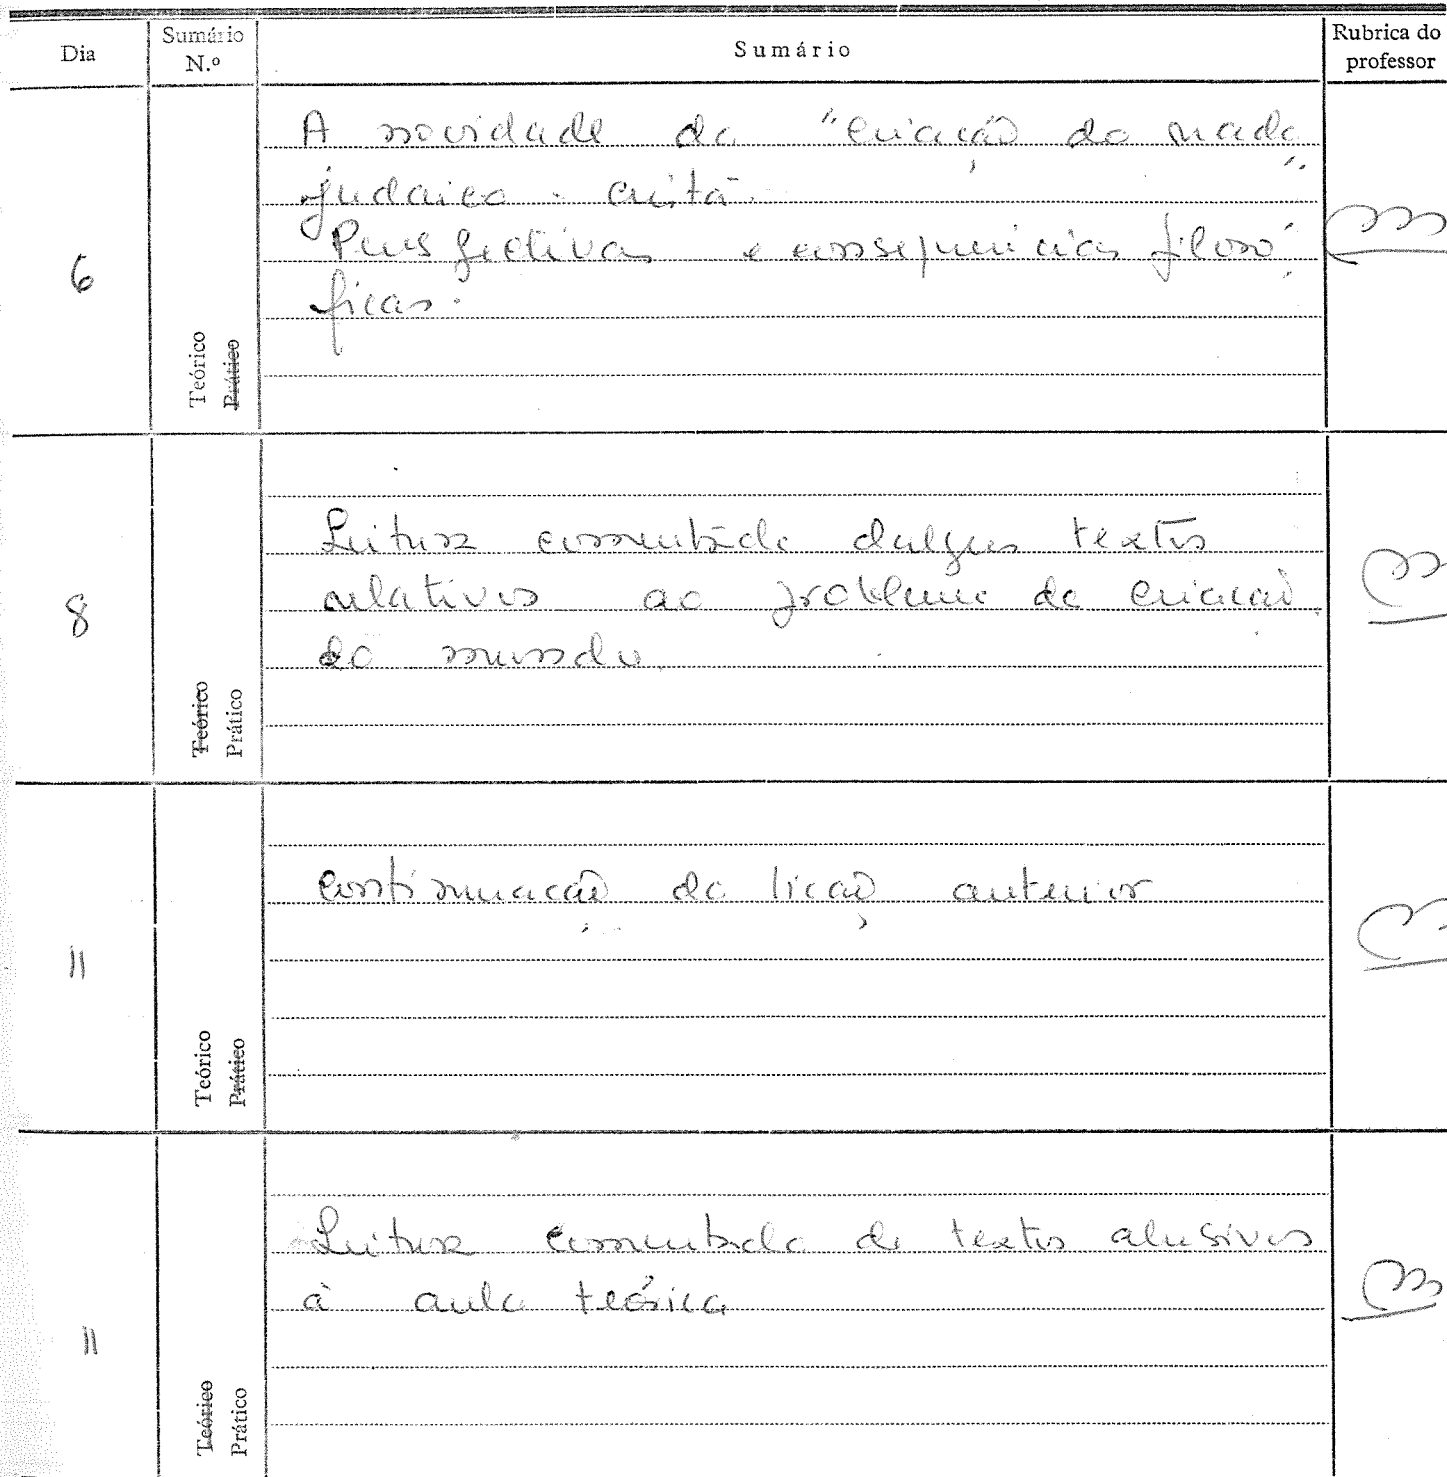 Dia
Sumário
N.º
Sumário
Rubrica do
professor
6
Teórico
Prático
A novidade da "criação do nada"
judaico-cristã.
Perspectivas e consequências filosó-
ficas.
8
Teórico
Prático
Leitura comentada dalguns textos
relativos ao problema da criação
do mundo.
11
Teórico
Prático
Continuação da lição anterior
11
Teórico
Prático
Leitura comentada de textos alusivos
à aula teórica